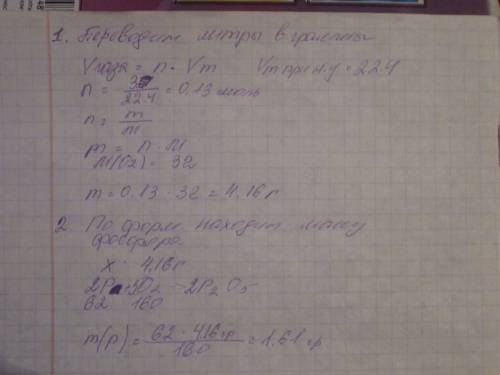 1. Переводим литры в граммы
Vгаза = n · Vm     Vm при н.у = 22.4
n = 3 / 22.4 = 0.13 моль
n = m / M
m = n · M
M(O2) = 32
m = 0.13 · 32 = 4.16 г
2. По форм. находим массу
фосфора.
x     4.16 г
2P + 5O2 → 2P2O5
62   160
m(P) = 62 · 4.16 гр / 160 = 1.61 гр